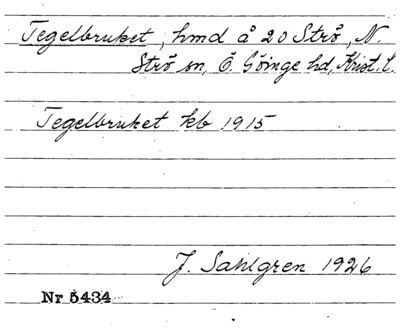 Tegelbruket, hmd å 20 Strö, N.
Strö sn, Ö. Göinge hd, Krist. l.
Tegelbruket kb 1915
J. Sahlgren 1926
Nr 5434